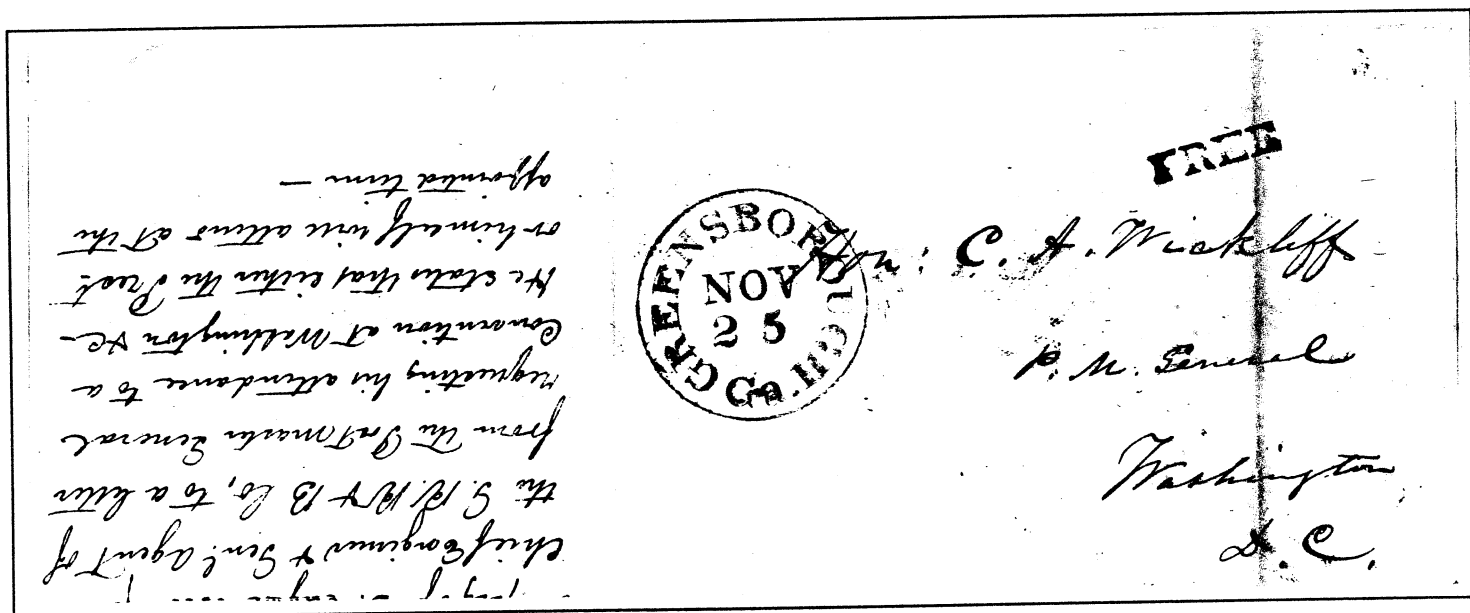 FREE
GREENSBOROUGH
NOV
25
Ga.
Hon: C. A. Wickliff
P. M. General
Washington
D. C.
Chief Engineer & Genl. Agent of
the G. R. R & B Co, to a letter
from the Postmaster General
requesting his attendance to a
Convention at Washington &c -
He states that either the Prest.
or himself will attend at the
appointed time —